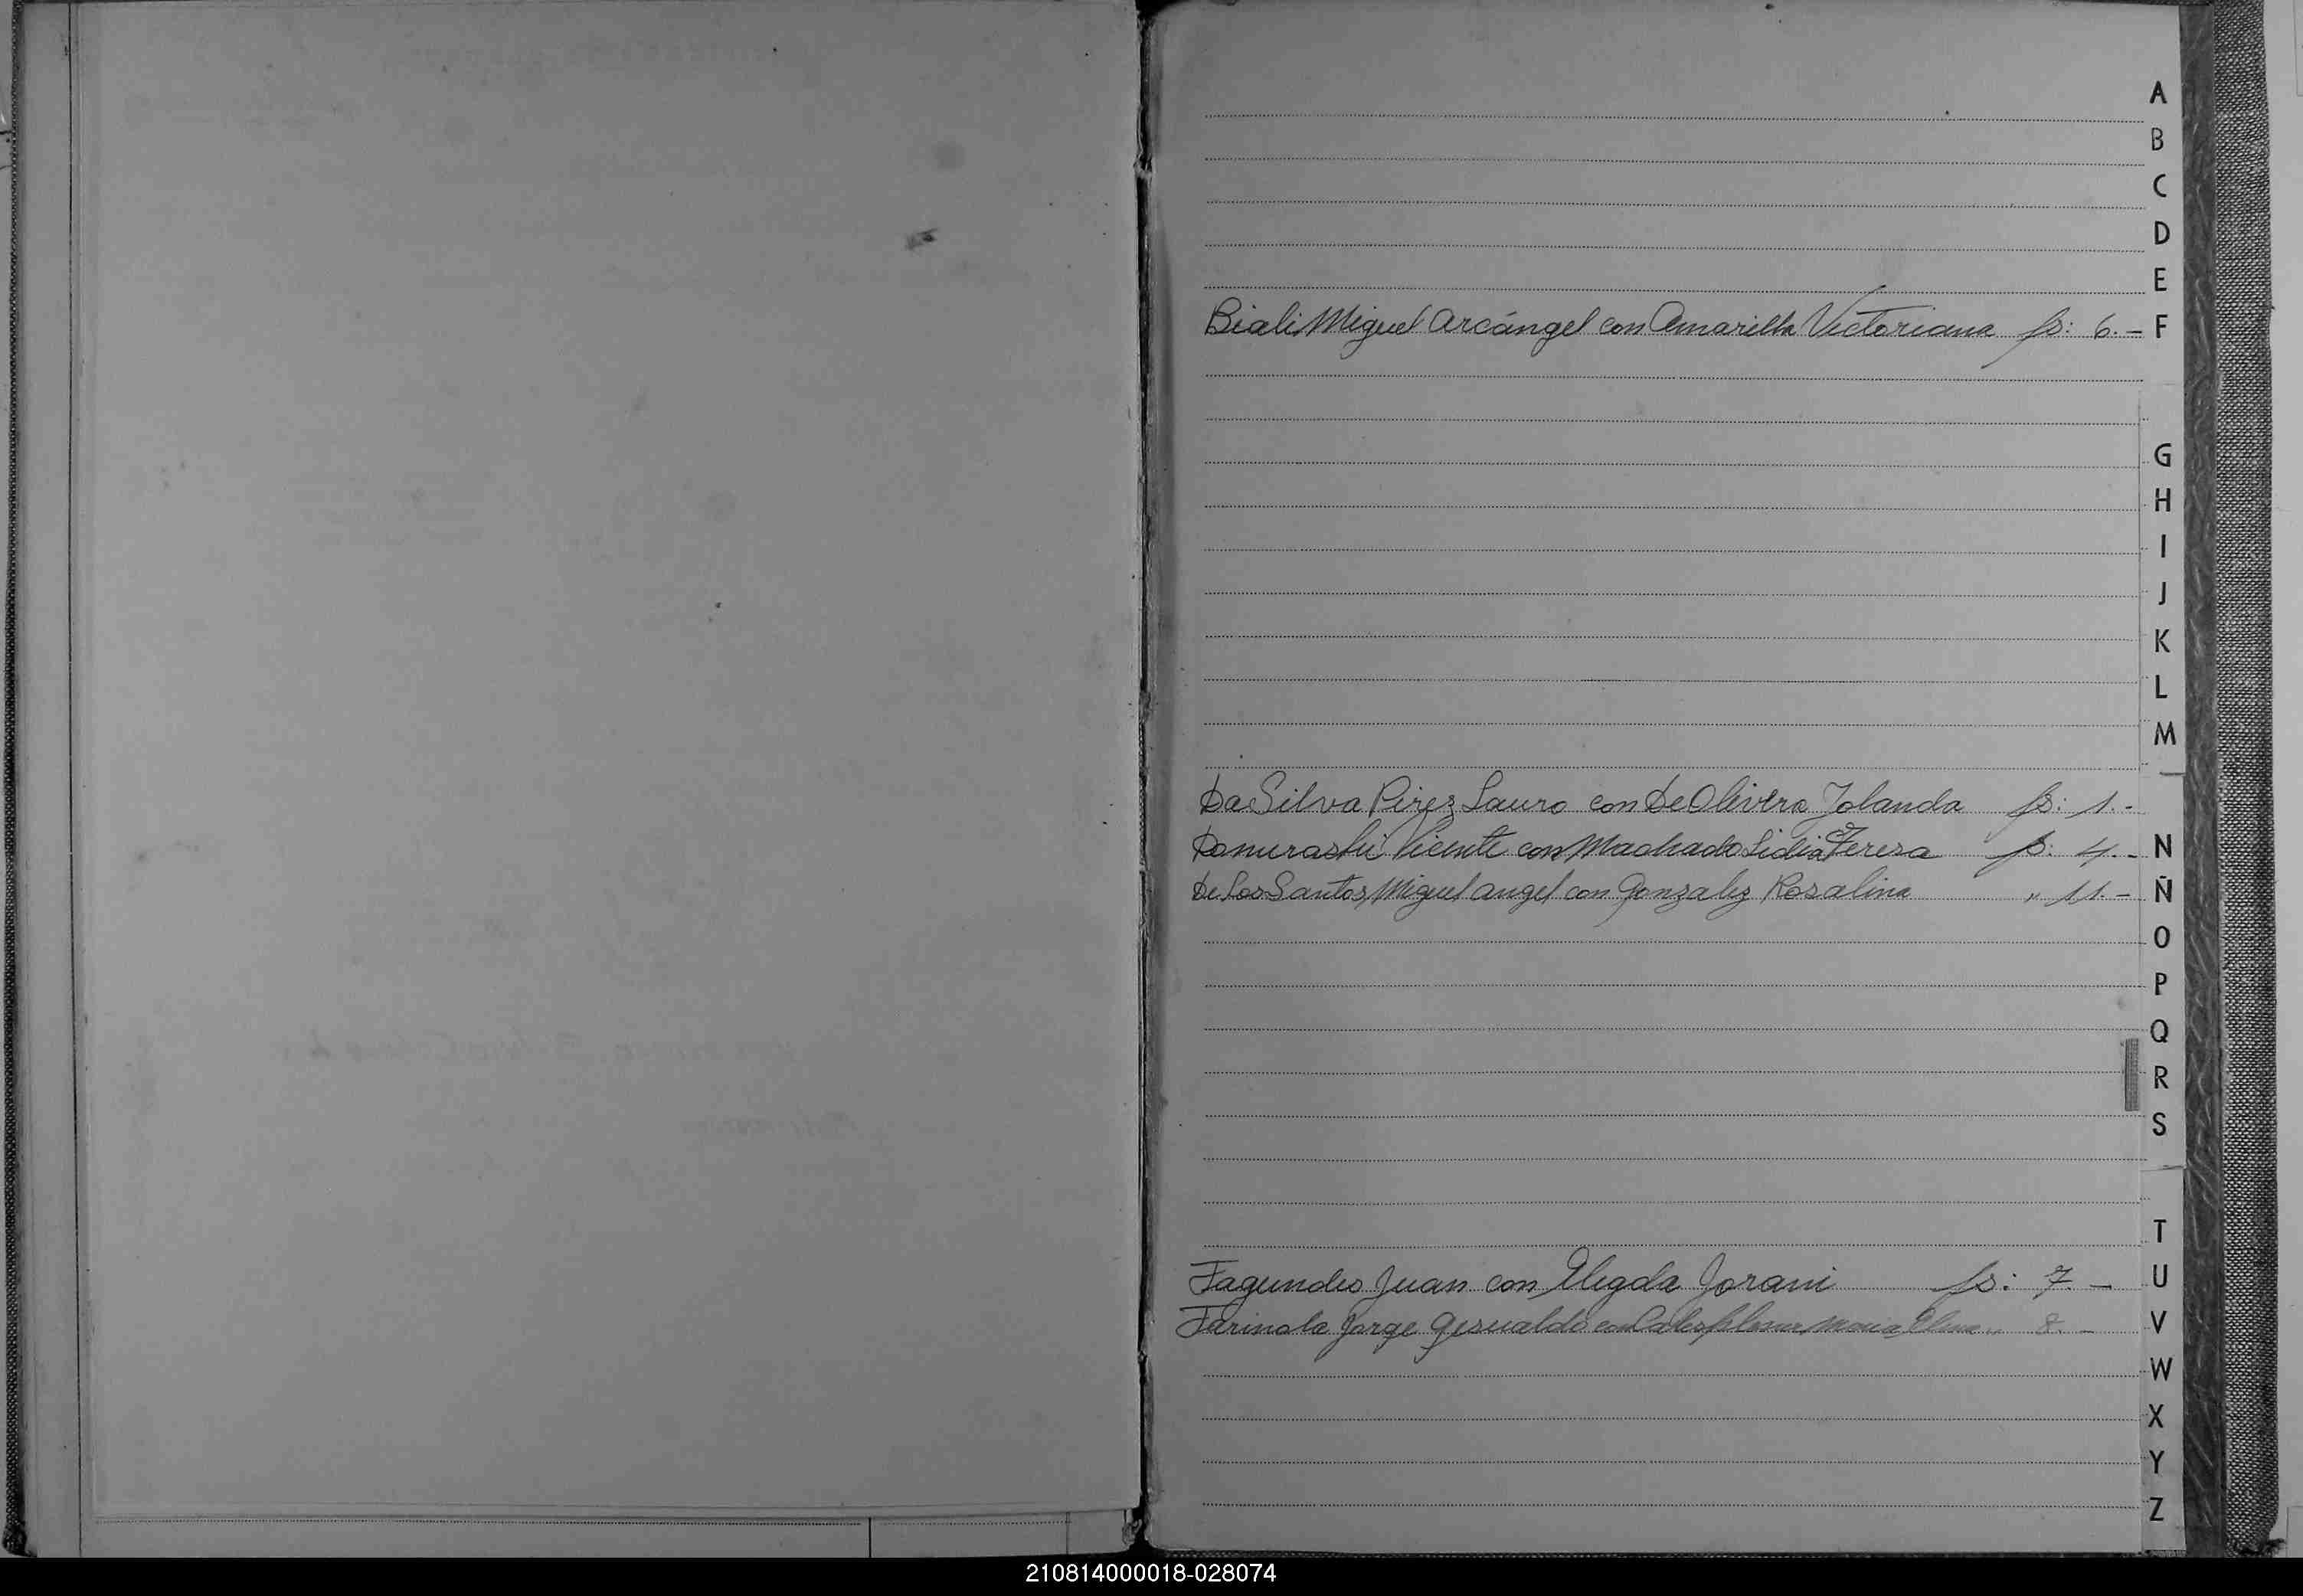 A
B
C
D
E
Biali Miguel Arcángel con Amarilla Victoriana fs: 6.- F
G
H
I
J
K
L
M
Da Silva Pirez Lauro con De Olivera Jolanda fs: 1.-
Vicente con Machado Lidia Teresa fs: 4.- N
De Los Santos Miguel angel con Gonzalez Rosalina " 11.- Ñ
O
P
Q
R
S
T
Fagundes Juan con Elegda Jorani fs: 7.- U
Farinola Jorge Gesualdo con Maria Elena " 8.- V
W
X
Y
Z
210814000018-028074